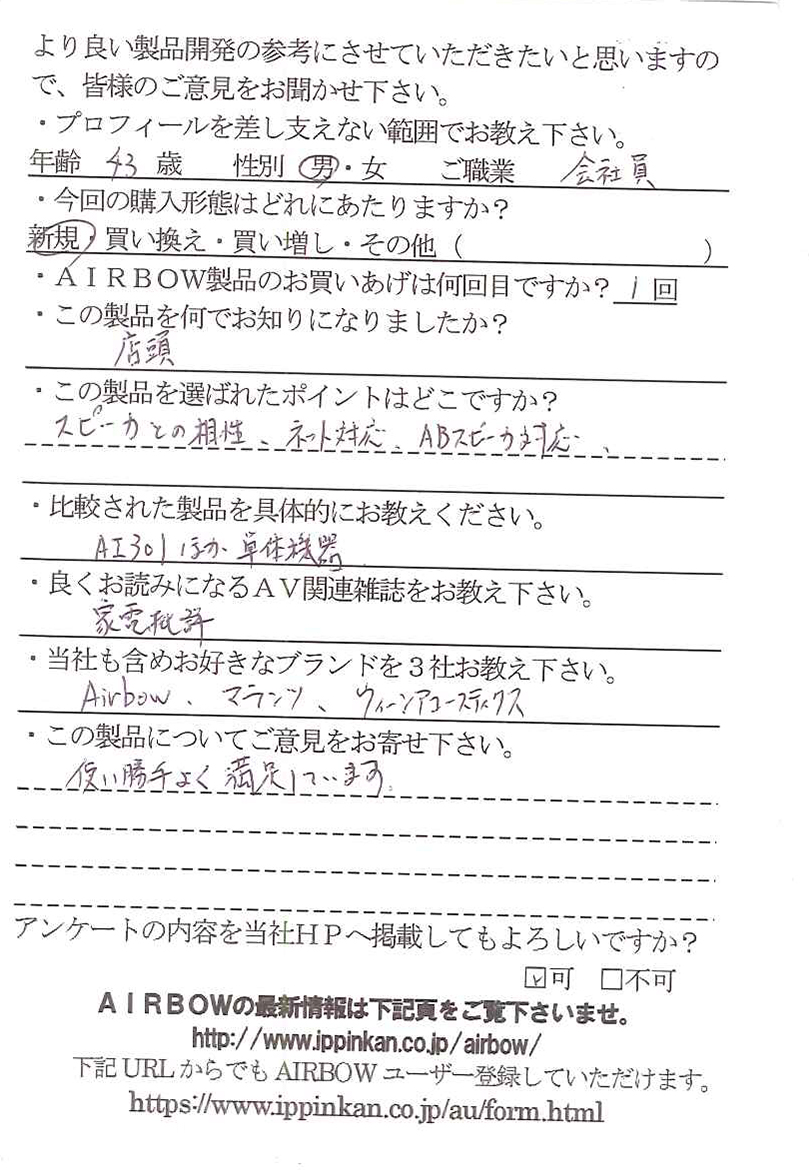 より良い製品開発の参考にさせていただきたいと思いますの
で、皆様のご意見をお聞かせ下さい。
・プロフィールを差し支えない範囲でお教え下さい。
年齢 43 歳 性別 男・女 ご職業 会社員
・今回の購入形態はどれにあたりますか?
新規・買い換え・買い増し・その他( )
・AIRBOW製品のお買いあげは何回目ですか? 1回
・この製品を何でお知りになりましたか?
店頭
・この製品を選ばれたポイントはどこですか?
スピーカとの相性、ネット対応、ABスピーカ対応、
・比較された製品を具体的にお教えください。
AI301ほか単体機器
・良くお読みになるAV関連雑誌をお教え下さい。
家電批評
・当社も含めお好きなブランドを3社お教え下さい。
Airbow、マランツ、ウィーンアコースティクス
・この製品についてご意見をお寄せ下さい。
使い勝手よく満足しています。
アンケートの内容を当社HPへ掲載してもよろしいですか?
☑可 □不可
AIRBOWの最新情報は下記頁をご覧下さいませ。
http://www.ippinkan.co.jp/airbow/
下記URLからでもAIRBOWユーザー登録していただけます。
https://www.ippinkan.co.jp/au/form.html